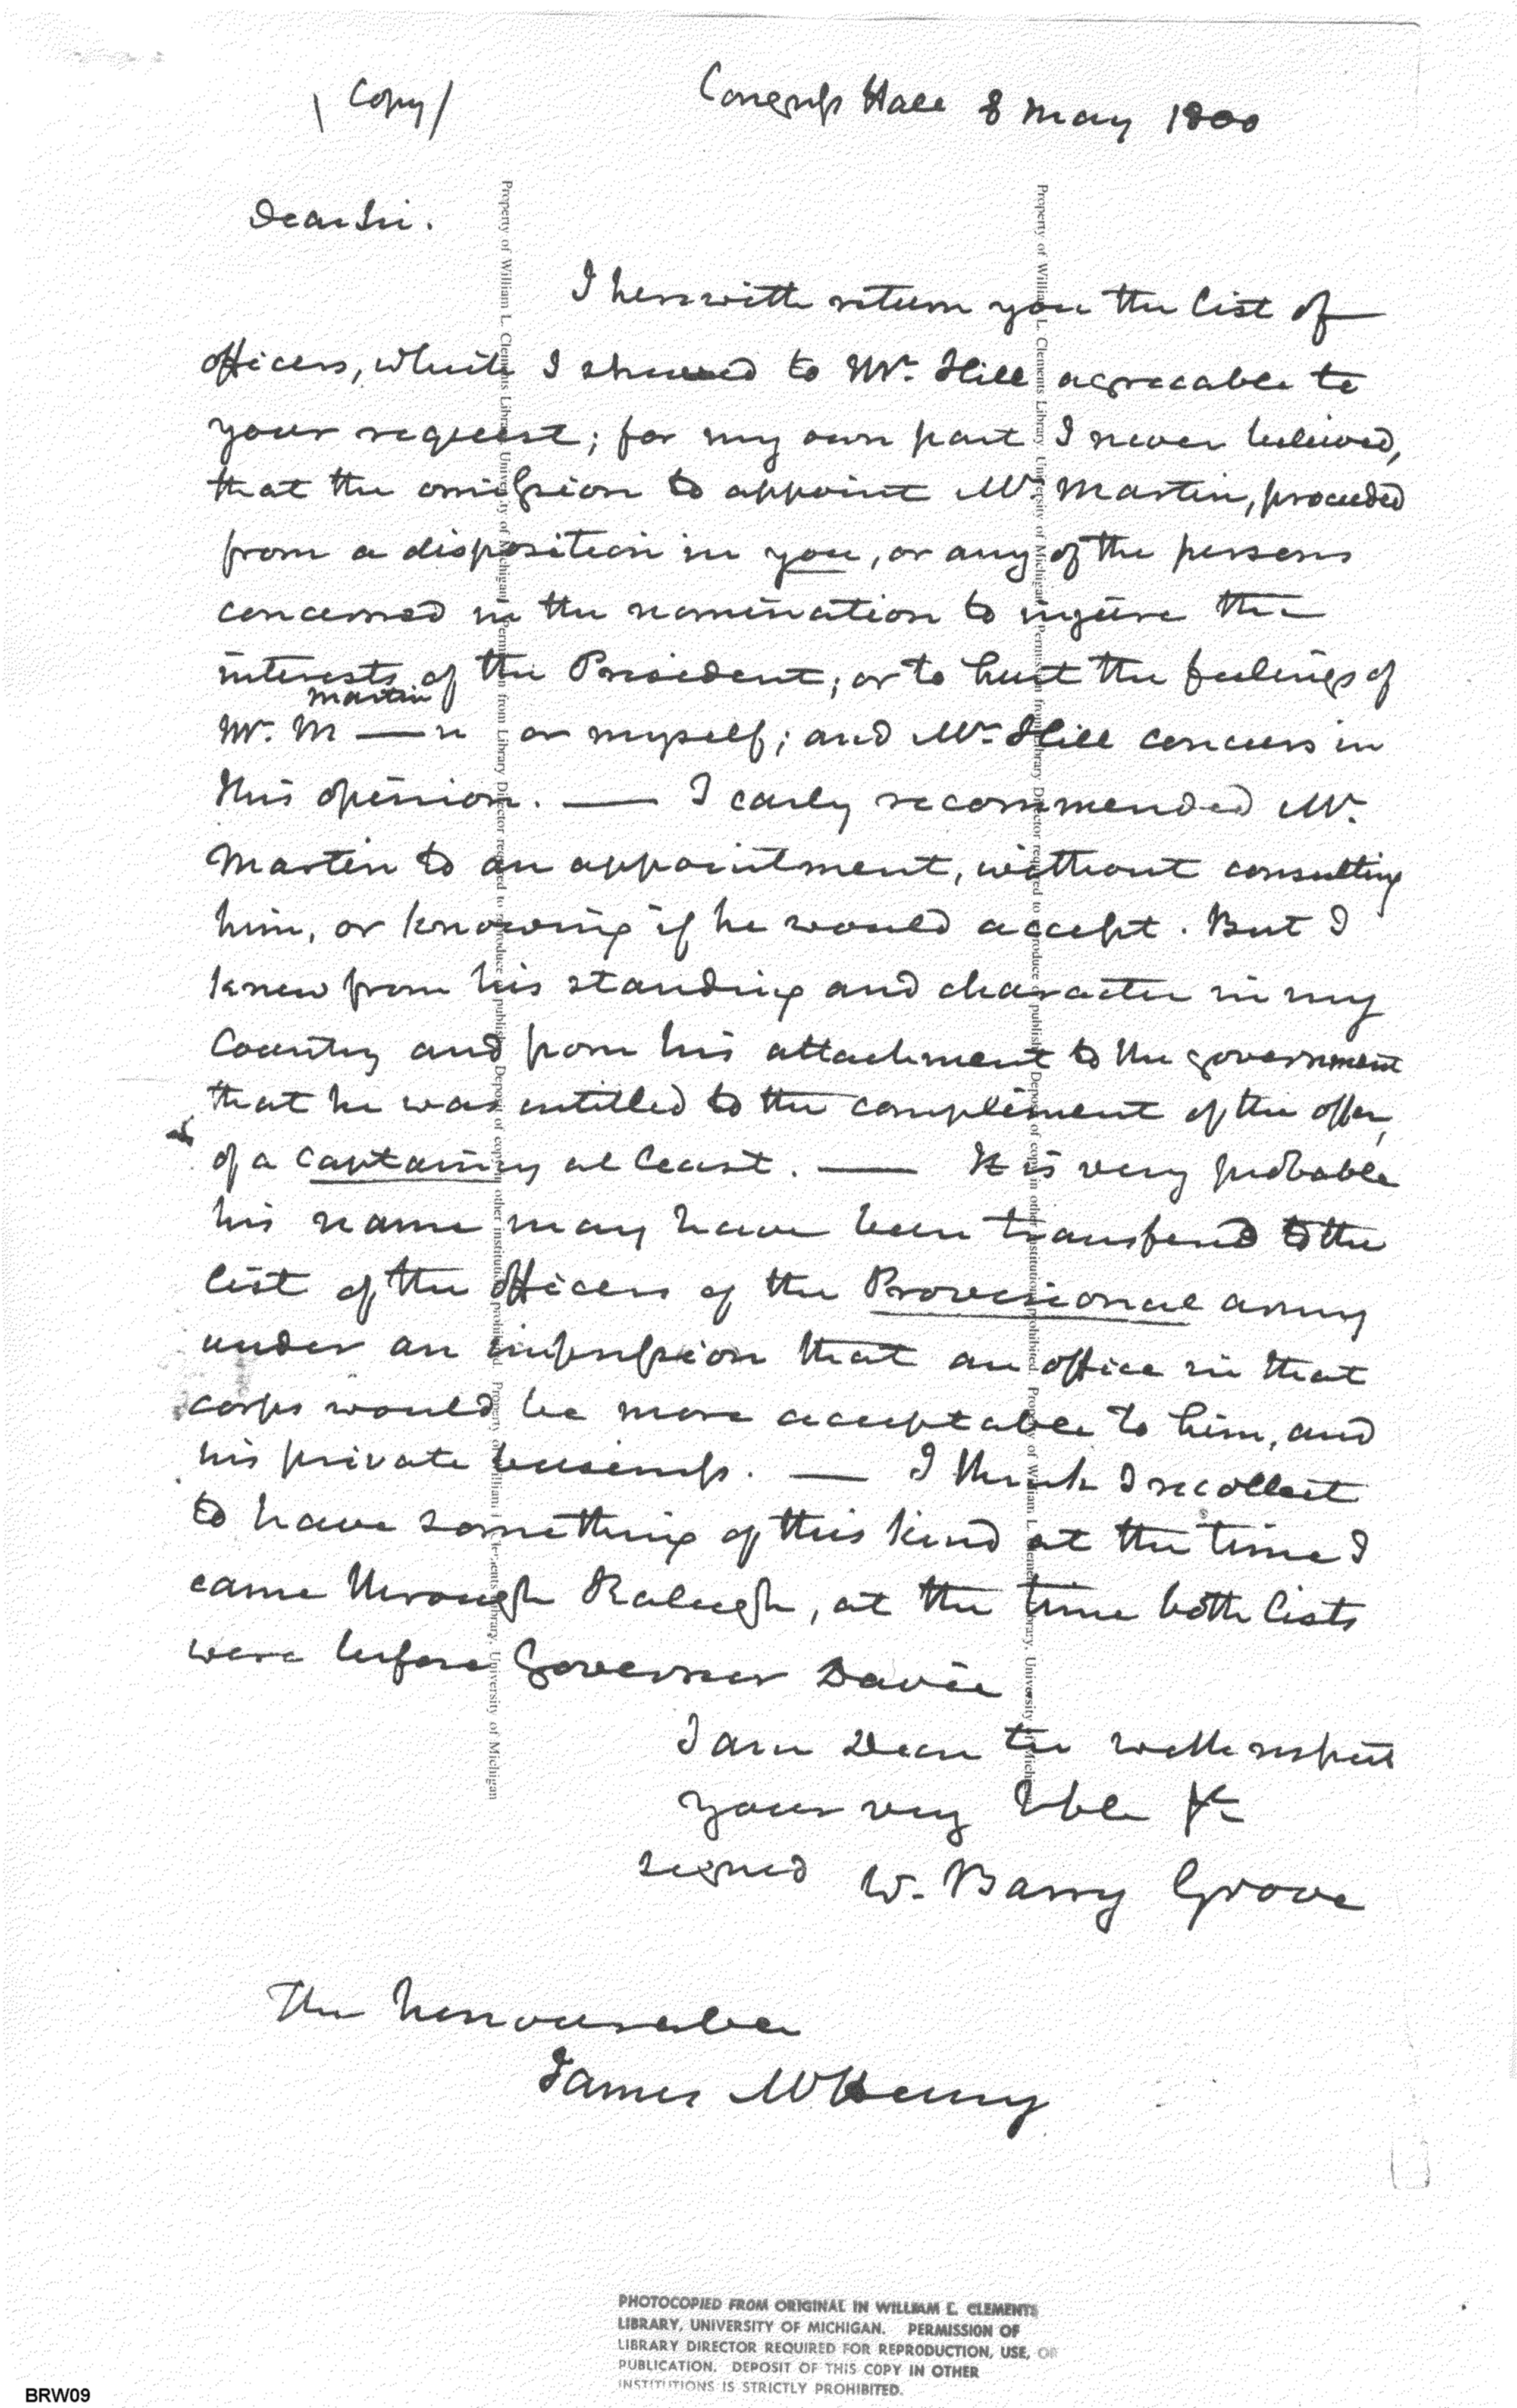 (Copy)
Congress Hall 8 May 1800
Dear Sir.
I herewith return you the list of
officers, which I shewed to Mr. Hill agreeable to
your request; for my own part I never believed,
that the omission to appoint Mr. Martin, proceeded
from a disposition in you, or any of the persons
concerned in the nomination to injure the
interests of the President; or to hurt the feelings of
martin
Mr. M——n or myself; and Mr. Hill concurs in
this opinion. —— I early recommended Mr.
Martin to an appointment, without consulting
him, or knowing if he would accept. But I
knew from his standing and character in my
Country and from his attachment to the government
that he was entitled to the compliment of the offer,
of a captaincy at least. —— It is very probable
his name may have been transfered to the
list of the officers of the Provisional army
under an impression that an office in that
corps would be more acceptable to him, and
his private business. —— I think I recollect
to have something of this kind at the time I
came through Raleigh, at the time both lists
were before Governor Davie
I am Dear Sir with respect
your very Hble &c
signed W. Barry Grove
The honourable
James McHenry
PHOTOCOPIED FROM ORIGINAL IN WILLIAM L. CLEMENTS
LIBRARY, UNIVERSITY OF MICHIGAN. PERMISSION OF
LIBRARY DIRECTOR REQUIRED FOR REPRODUCTION, USE, OR
PUBLICATION. DEPOSIT OF THIS COPY IN OTHER
INSTITUTIONS IS STRICTLY PROHIBITED.
BRW09
Property of William L. Clements Library, University of Michigan. Permission from Library Director required to reproduce or publish. Deposit of copy in other institutions prohibited. Property of William L. Clements Library, University of Michigan
Property of William L. Clements Library, University of Michigan. Permission from Library Director required to reproduce or publish. Deposit of copy in other institutions prohibited. Property of William L. Clements Library, University of Michigan